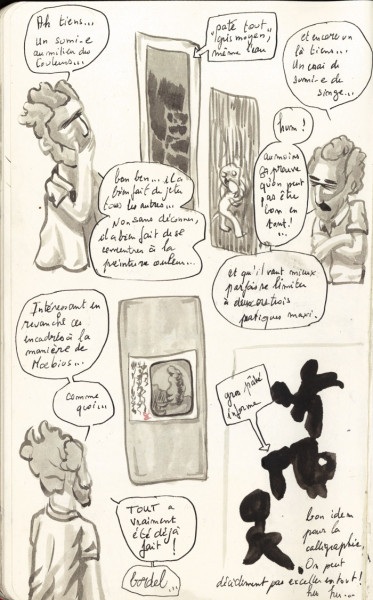 Ah tiens...
Un sumi-e
au milieu des
couleurs...
pâté tout
gris moyen,
même l'eau
et encore un
là tiens...
Un essai de
sumi-e de
singe...
hum!
au moins
ça prouve
qu'on peut
pas être
bon en
tout!
...
bon ben... il a
bien fait de jeter
tous les autres...
Non sans déconner,
il a bien fait de se
recentrer à la
peinture couleur...
et qu'il vaut mieux
parfois se limiter
à deux ou trois
pratiques maxi.
Intéressant en
revanche ces
encadrés à la
manière de
Moebius...
comme
quoi...
TOUT a
vraiment
été déjà
fait!
bordel...
gros pâté
informe
bon idem
pour la
calligraphie,
On peut
décidément pas exceller en tout!